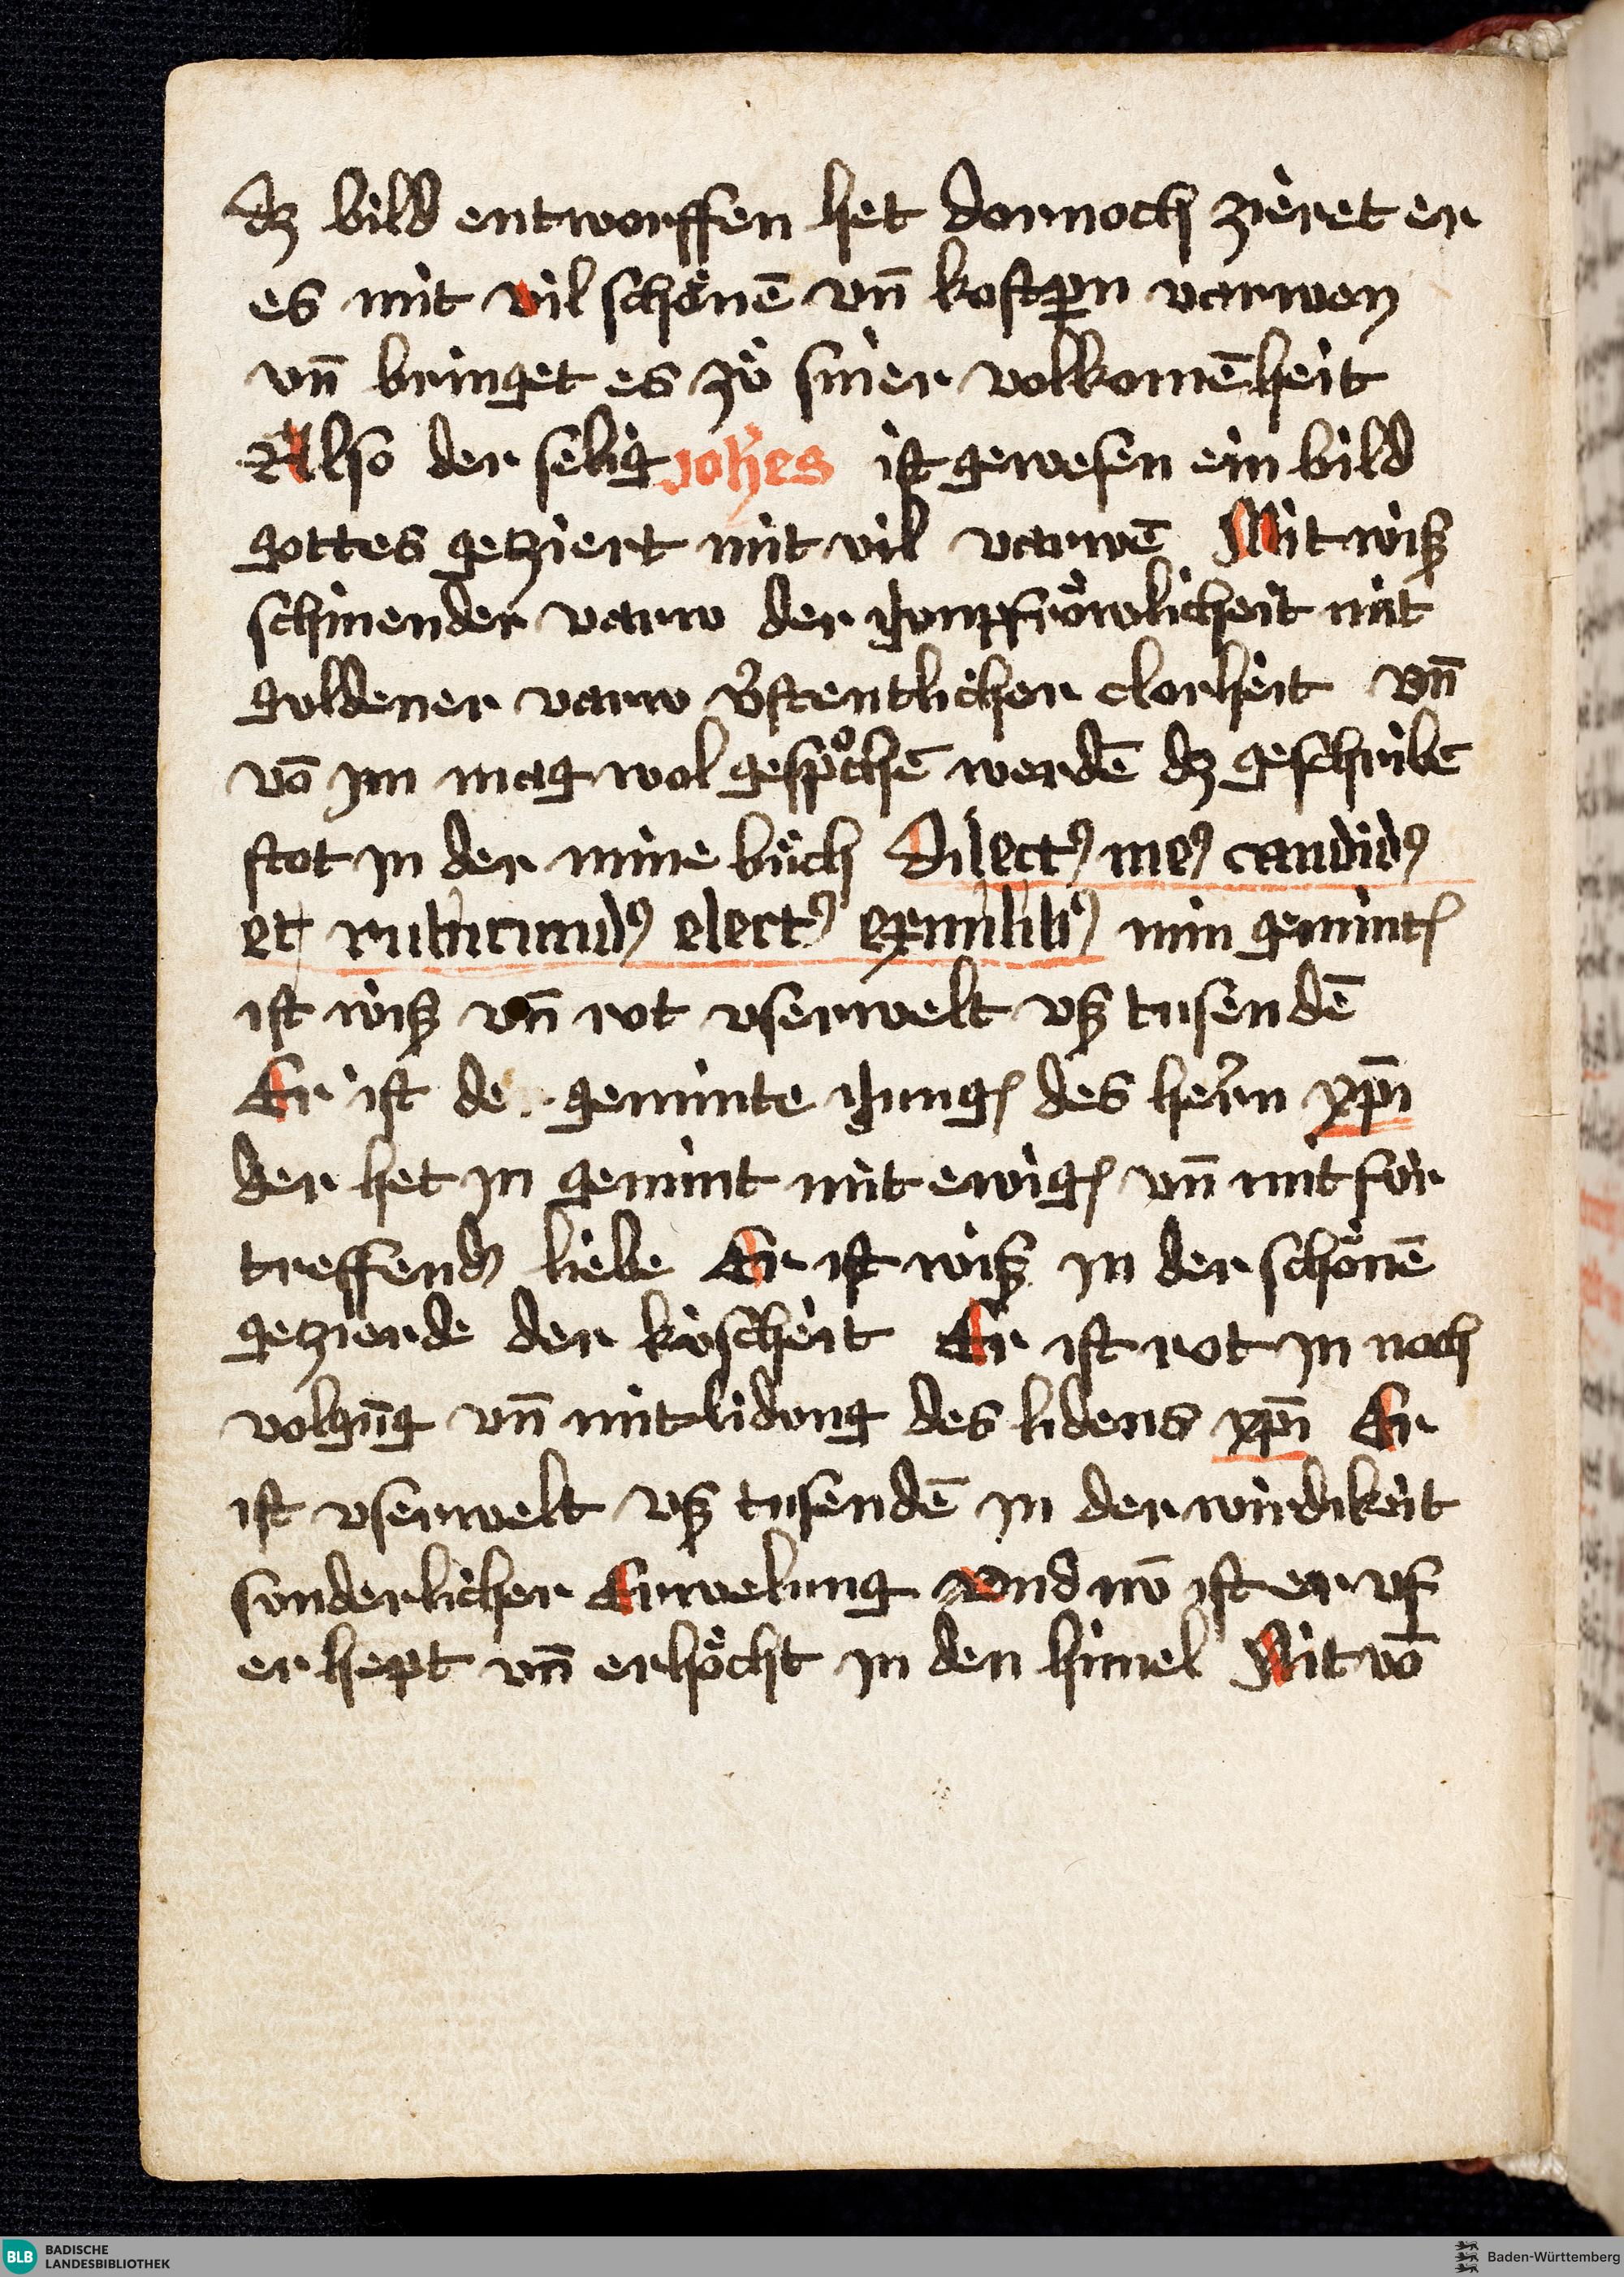 dz bild entworffen het dornoch zieret er
es mit vil schönē vn̄ kostꝑn varwen
vn̄ bringet es zů siner volkomēheit
Also der selig joh̄es ist gewesen ein bild
gottes geziert mit vil varwē Mit wiß
schinender varw der jvnpfröwlicheit mit
guldener varw v̓stentlicher clorheit Vn̄
vō im mag wol gespͦchē werdē dz geschribē
stot in der mine bůch Dilectꝰ meꝰ candidꝰ
et rubicundꝰ electꝰ exmilibꝰ min gemintꝭ
ist wiß vn̄ rot vserwelt vß tusendē
Er ist de geminte jungꝭ des her̓n xp̄i
der het in gemint mit ewigꝭ vn̄ mit für
treffendꝰ liebe Er ist wiß in der schönē
gezierde der küscheit Er ist rot in noch
volgūg vn̄ mitlidung des lidens xp̄i Er
ist vserwelt vß tusendē in der wirdikeit
sonderlicher Erwelung Vnd nv̄ ist er vf
erhept vn̄ erhöcht in den himel Nit vō
BLB BADISCHE
LANDESBIBLIOTHEK
Baden-Württemberg